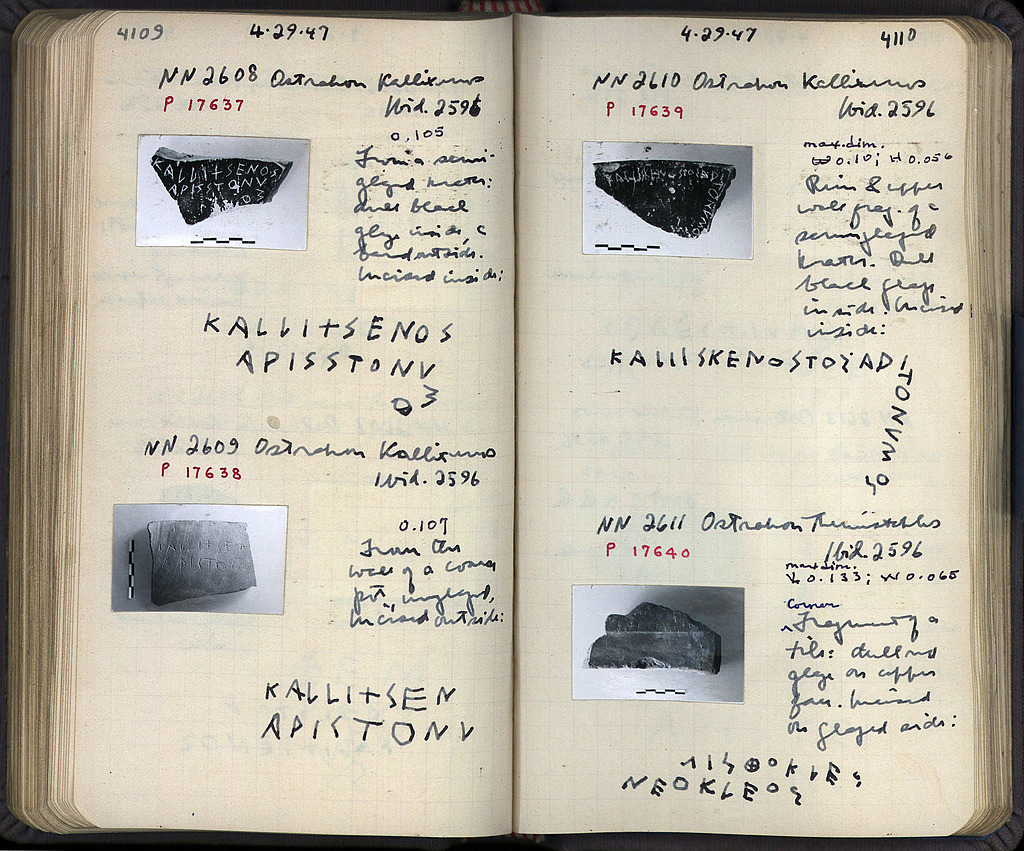 4109 4·29·47
NN 2608 Ostrakon Kallixenos
P 17637 Ibid. 2596
0,105
From a semi-
glazed krater:
dull black
glaze inside, a
band outside.
Incised inside:
KALLI+SENOS
APISSTONV
KALLI+SENOS
APISSTONV
M
O
NN 2609 Ostrakon Kallixenos
P 17638 Ibid. 2596
0.107
From the
wall of a coarse
pot, unglazed,
Incised outside:
KALLI+SEN
APISTONV
4·29·47 4110
NN 2610 Ostrakon Kallixenos
P 17639 Ibid. 2596
max. dim.
W 0.10; H 0.056
Rim & upper
wall frag. of a
semiglazed
krater. Dull
black glaze
inside. Incised
inside:
KALLISKENOSTOSADI
TONVMO
NN 2611 Ostrakon Themistokles
P 17640 Ibid. 2596
max. dim.
L 0.133; W 0.065
corner
Fragment of a
tile: dull red
glaze on upper
face. Incised
on glazed side:
NEOKLEOS